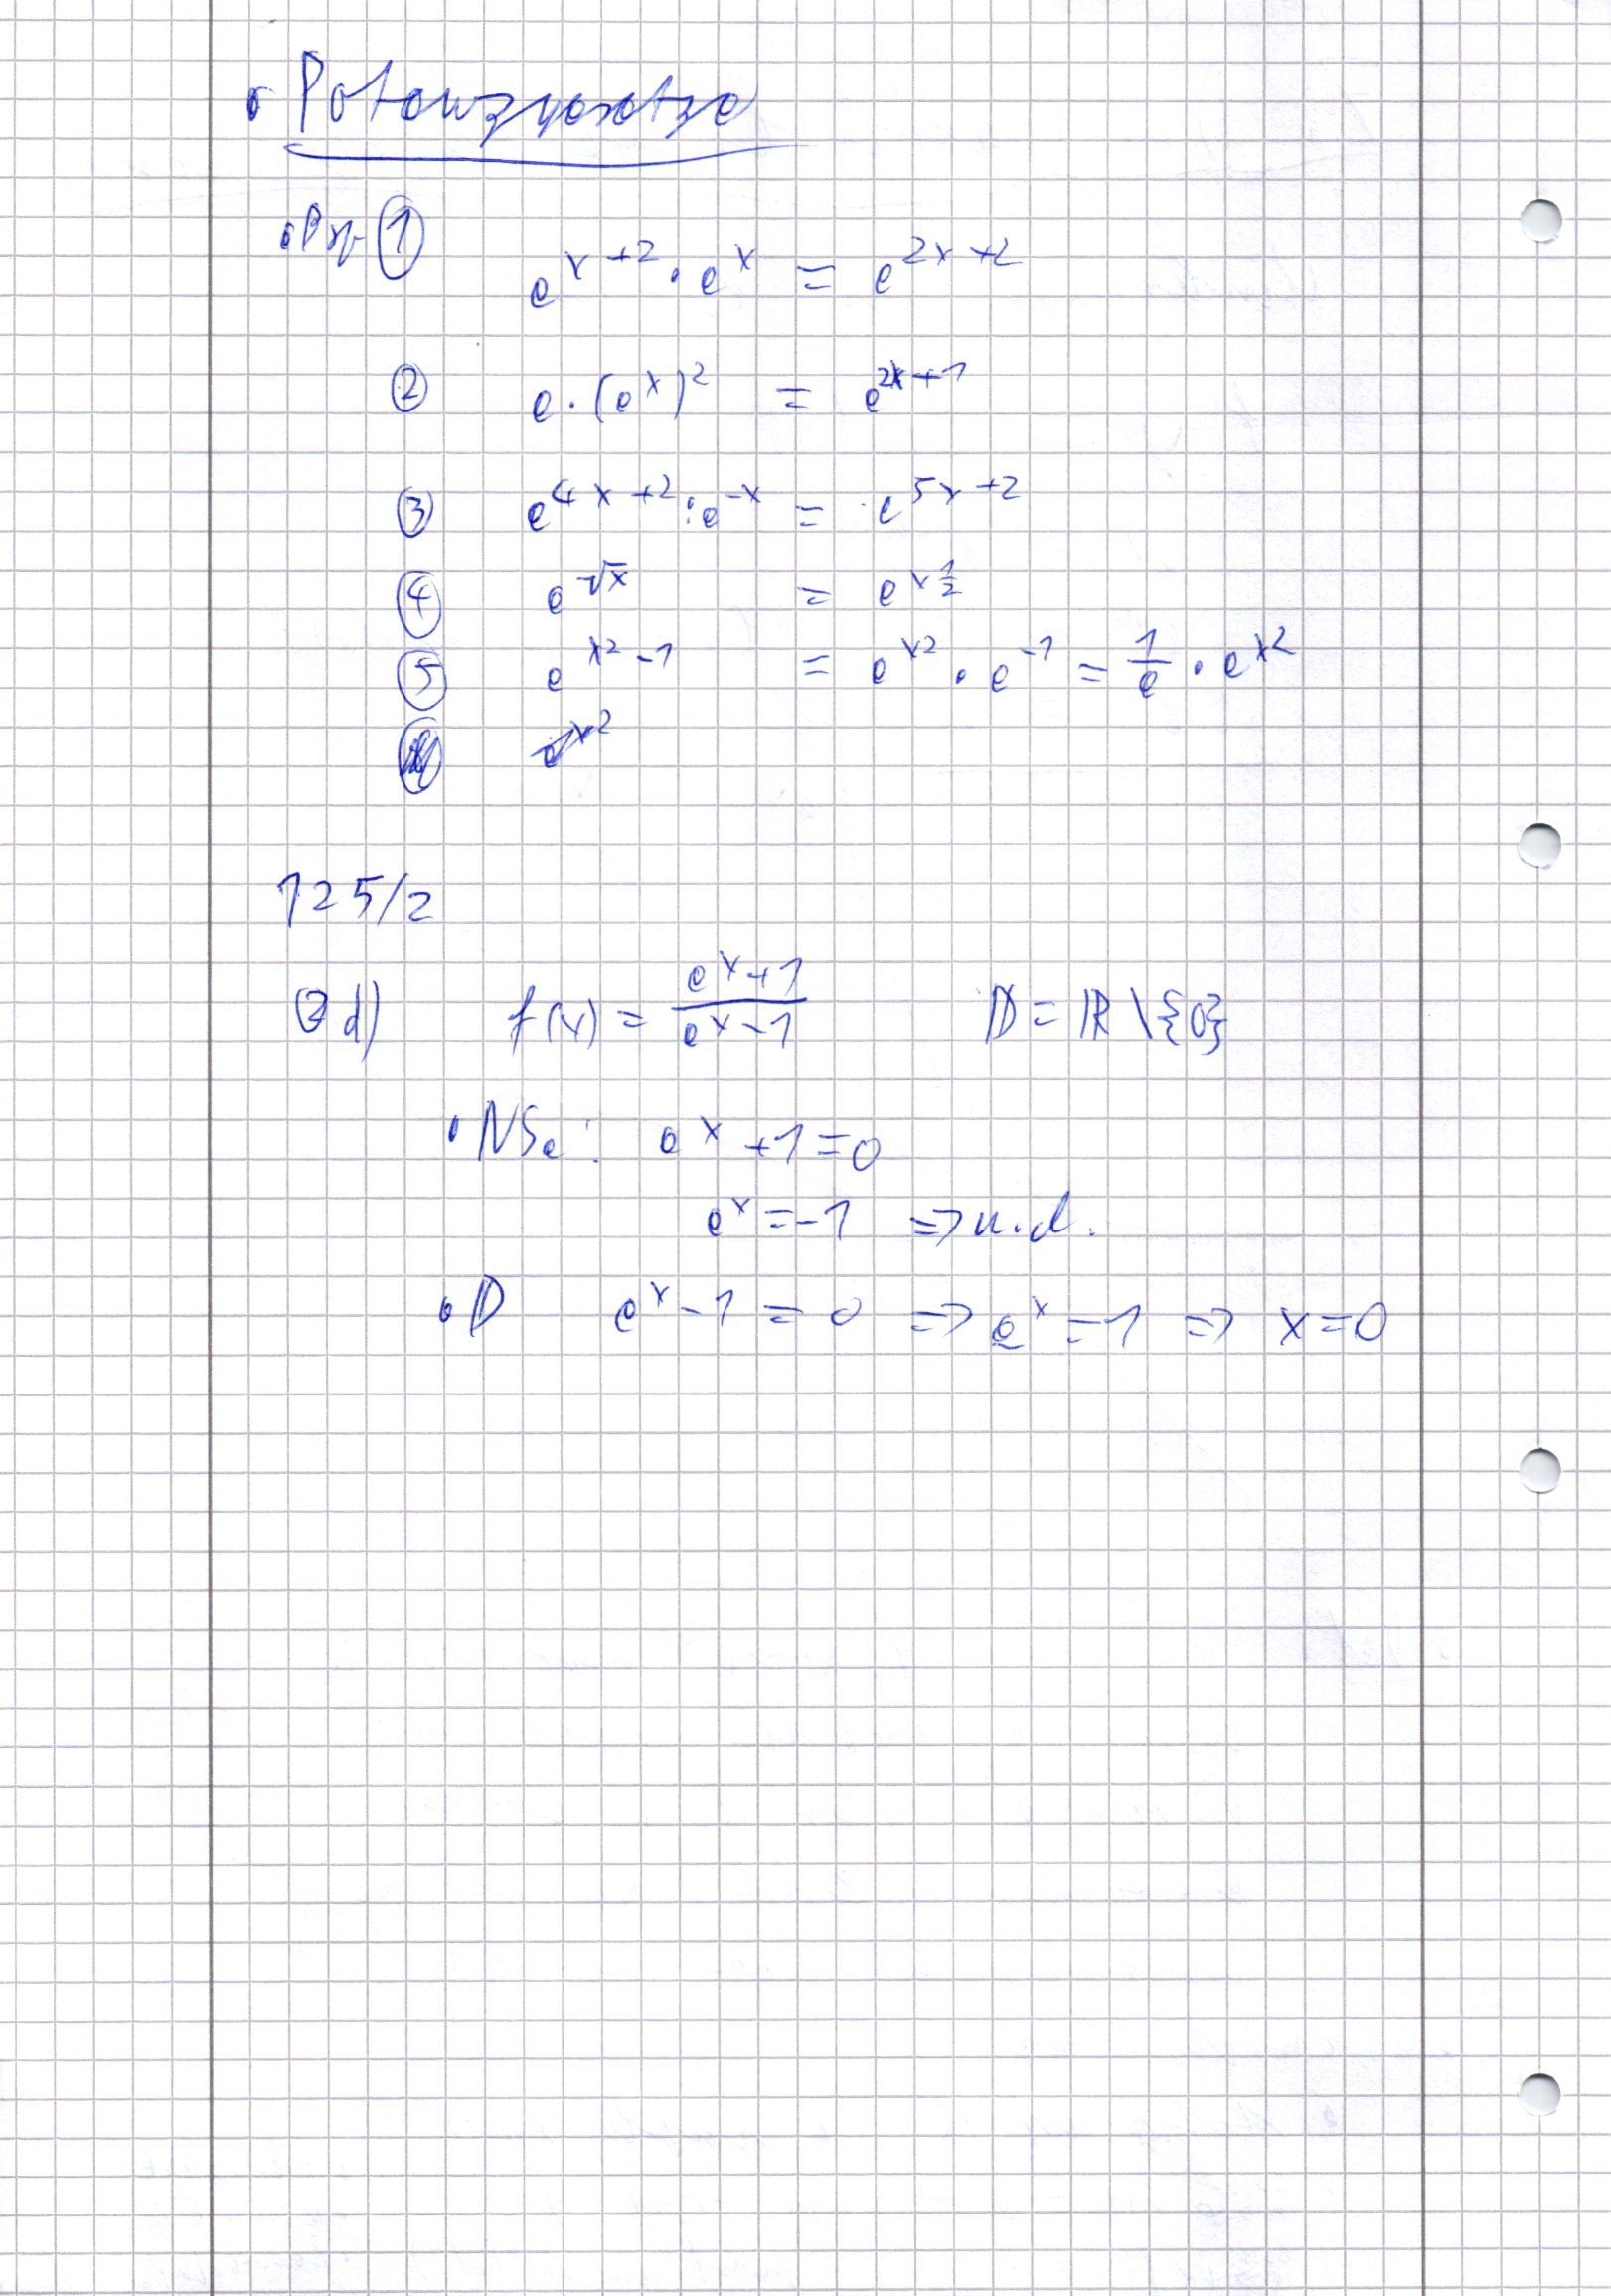 • Potenzgesetze
• Bsp ① e^{x+2} · e^x = e^{2x+2}
② e · (e^x)^2 = e^{2x+1}
③ e^{4x+2} : e^{-x} = e^{5x+2}
④ e^{√x} = e^{x^{1/2}}
⑤ e^{x^2-1} = e^{x^2} · e^{-1} = 1/e · e^{x^2}
e^{x^2}
125/2
d) f(x) = (e^x+1)/(e^x-1) D = ℝ \ {0}
• NSe: e^x + 1 = 0
e^x = -1 => n.d.
• D e^x - 1 = 0 => e^x = 1 => x = 0